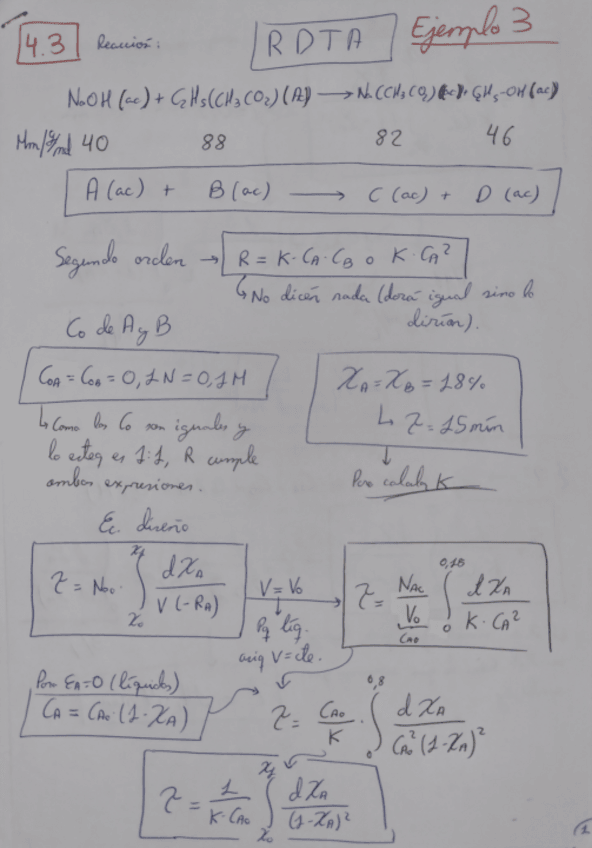 4.3 Reacción: RDTA Ejemplo 3
NaOH (ac) + C₂H₅(CH₃CO₂) (Ac) → Na(CH₃CO₂)(ac) + C₂H₅-OH (ac)
Mm/g/mol 40 88 82 46
A (ac) + B (ac) → C (ac) + D (ac)
Segundo orden → R = K·C_A·C_B o K·C_A²
↳ No dicen nada (dará igual sino lo
dirían).
Co de A y B
C_OA = C_OB = 0,1N = 0,1M
X_A = X_B = 18%
↳ τ = 15 min
↳ Como las Co son iguales y
la esteq es 1:1, R cumple
ambas expresiones.
↓
Para calcular K
Ec. diseño
τ = N_Ao · ∫_{X_0}^{X_f} dX_A / V(-R_A)
V = V_0
↓
Pq líq.
aciq V = cte.
τ = N_Ao/V_0 ∫_0^{0,18} dX_A / K·C_A²
C_AO
Para ε_A = 0 (líquidos)
C_A = C_Ao·(1-X_A)
τ = C_Ao/K · ∫_0^{0,8} dX_A / C_Ao²(1-X_A)²
τ = 1/K·C_Ao ∫_{X_0}^{X_f} dX_A / (1-X_A)²
1